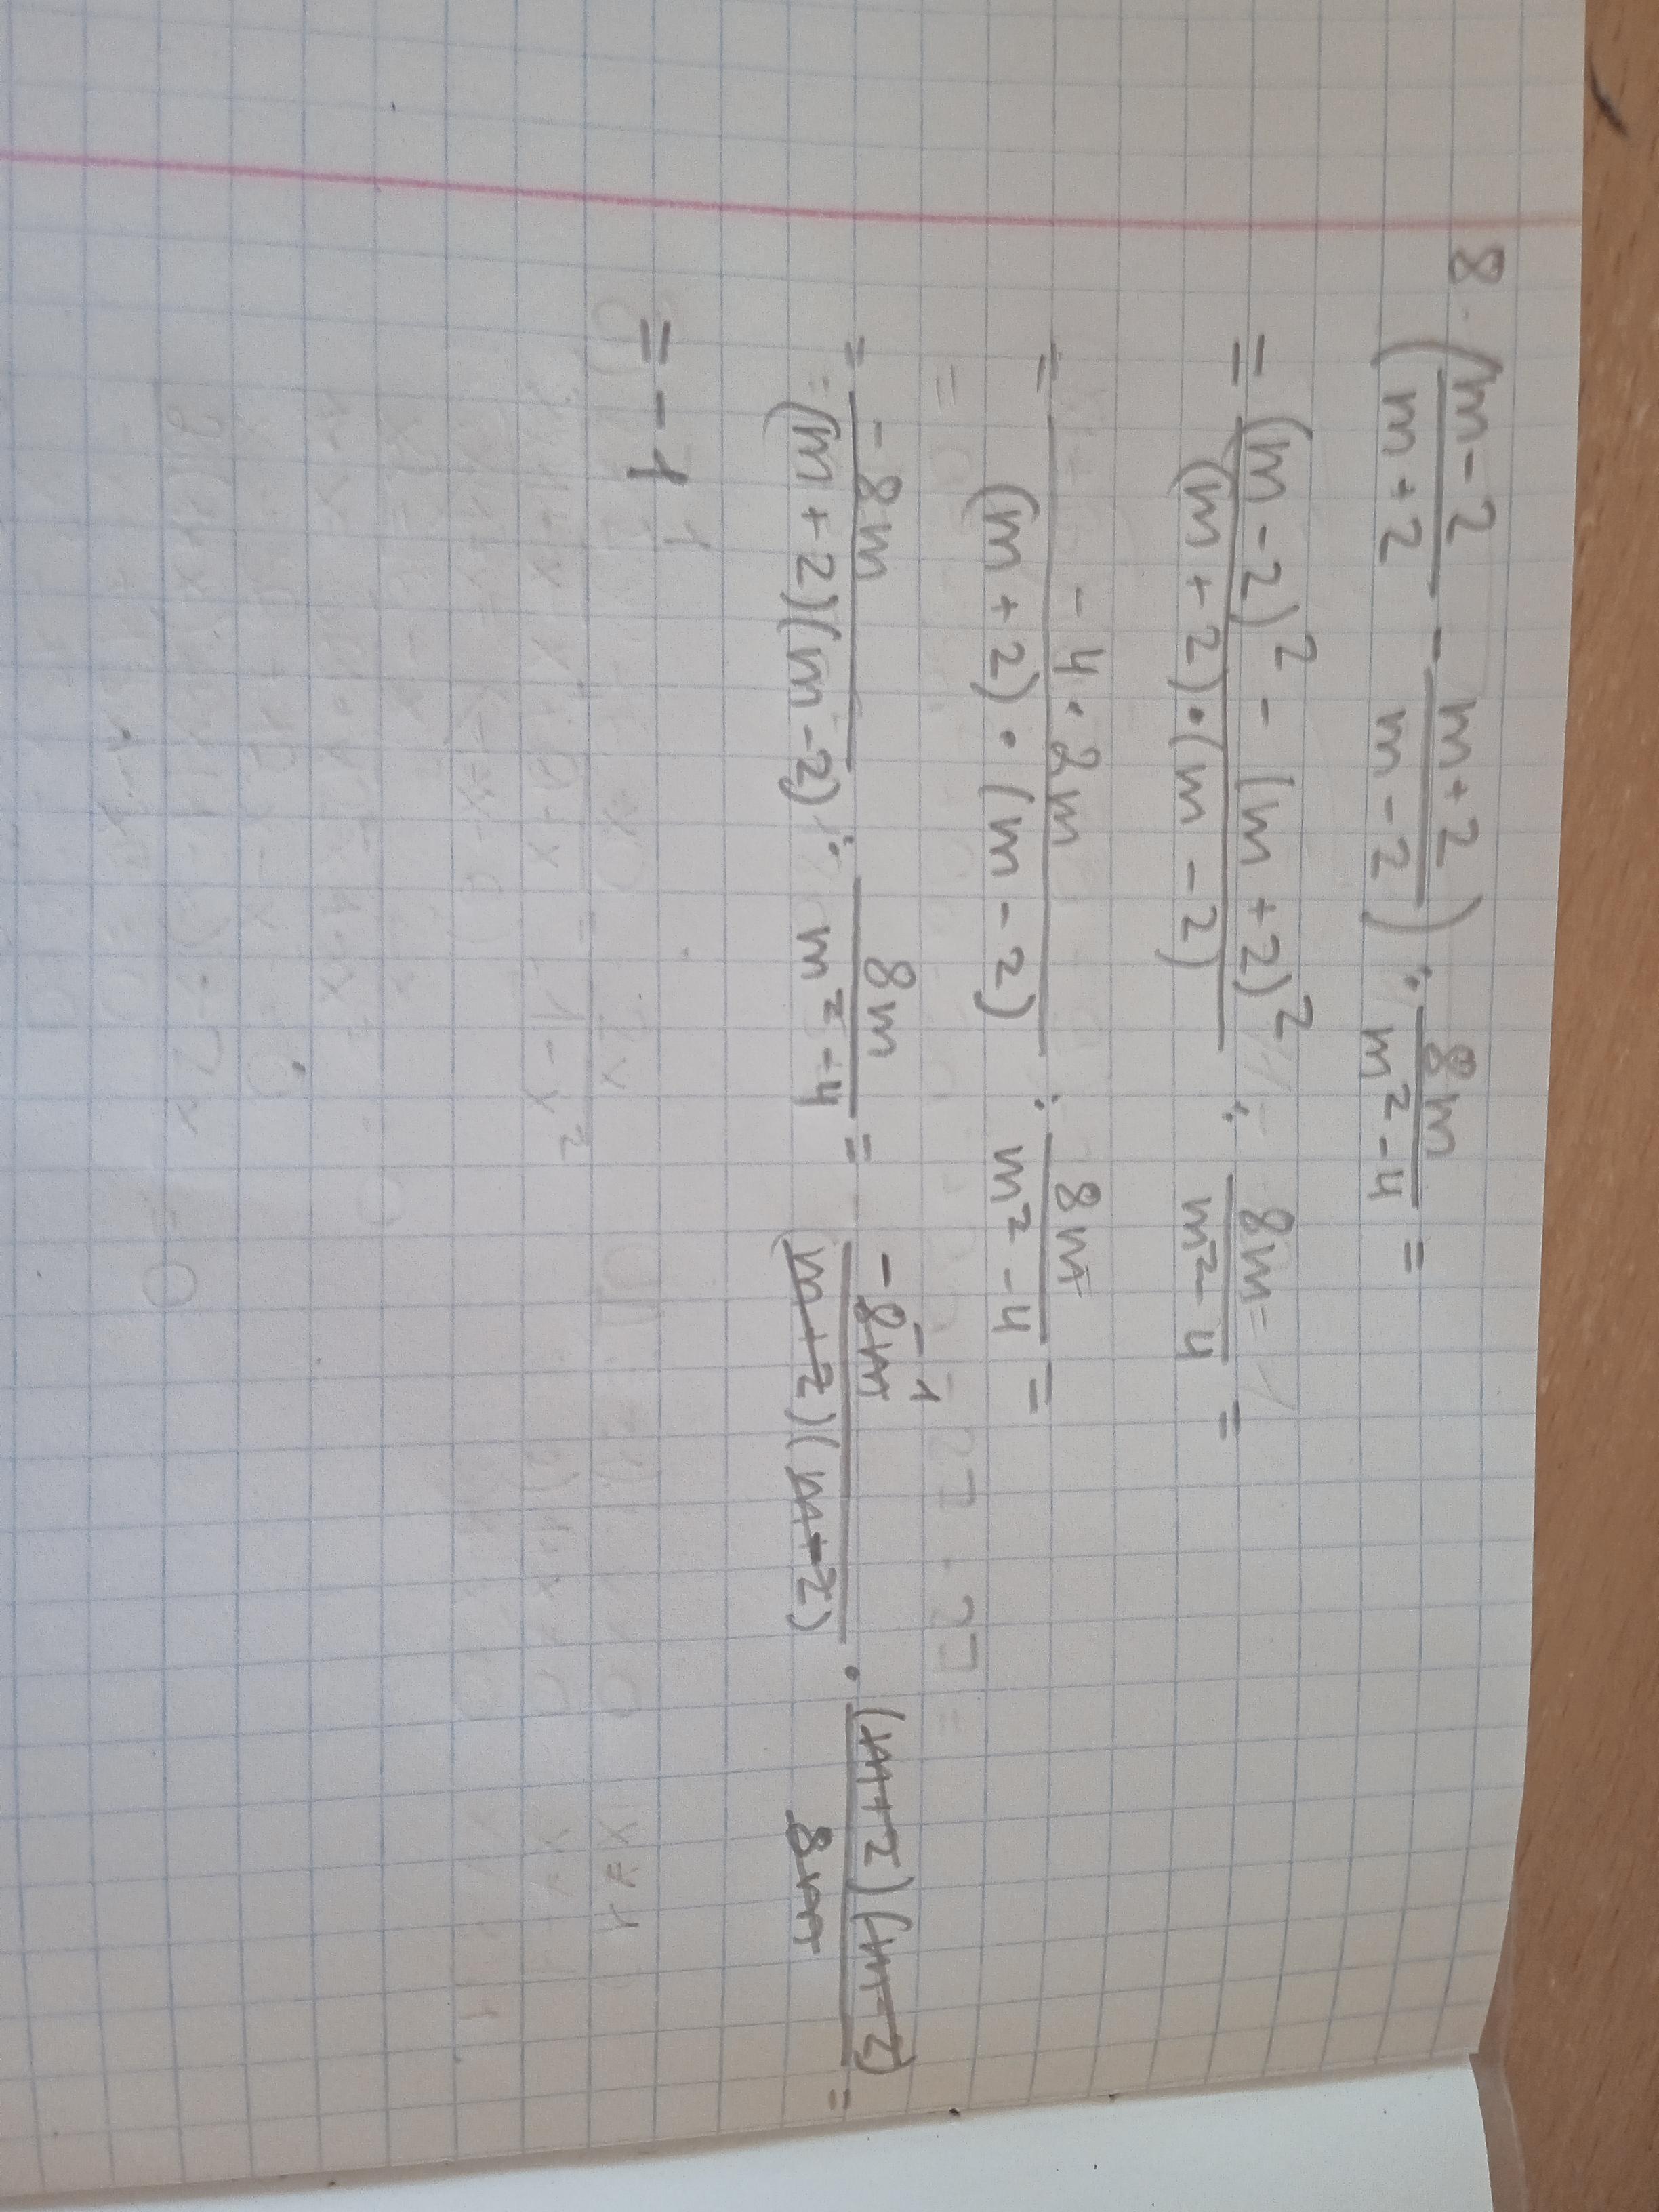 8. ((m-2)/(m+2) - (m+2)/(m-2)) : 8m/(m²-4) =
= ((m-2)² - (m+2)²)/((m+2)·(m-2)) : 8m/(m²-4) =
= (-4·2m)/((m+2)·(m-2)) : 8m/(m²-4) =
= -8m/((m+2)(m-2)) : 8m/(m²-4) = -8m/((m+2)(m-2)) · ((m+2)(m-2))/8m =
= -1